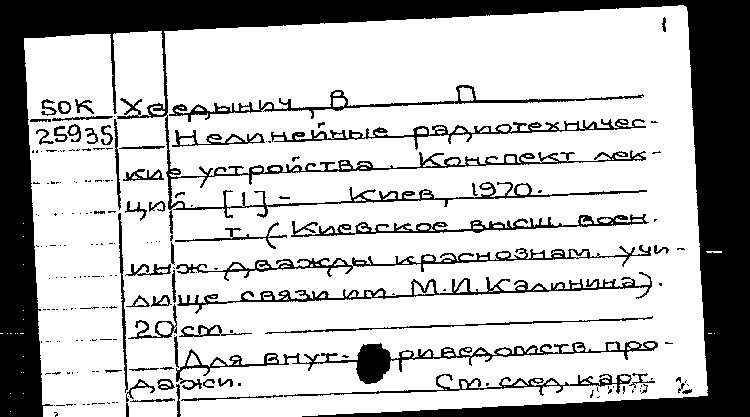 1
50К Хведынич, В П
25935 Нелинейные радиотехничес-
кие устройства. Конспект лек-
ций. [1] - Киев, 1970.
т. (Киевское высш. воен.
инж. дважды краснознам. учи-
лище связи им. М.И. Калинина).
20 см.
Для внут- риведомств. про-
дажи. См. след. карт.